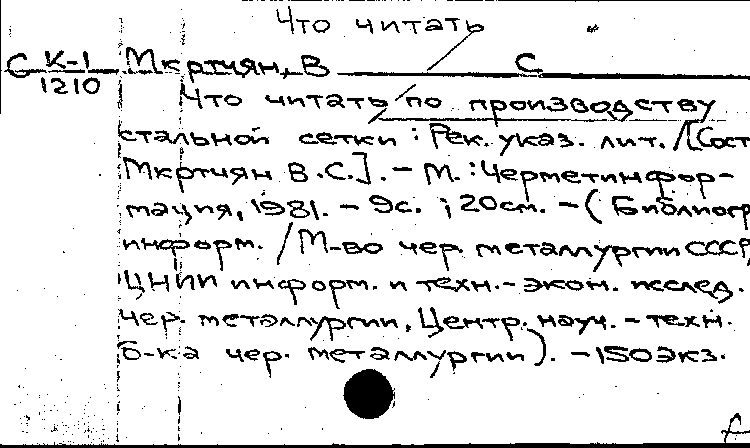 Что читать
С К-1 Мкртчян, В С
1210
Что читать по производству
стальной сетки : Рек. указ. лит. /[Сост
Мкртчян В.С.]. – М. : Черметинфор-
мация, 1981. – 9с. ; 20см. – ( Библиогр
информ. / М-во чер. металлургии СССР,
ЦНИИ информ. и техн.-экон. исслед.
чер. металлургии, Центр. науч. – техн.
б-ка чер. металлургии). – 150экз.